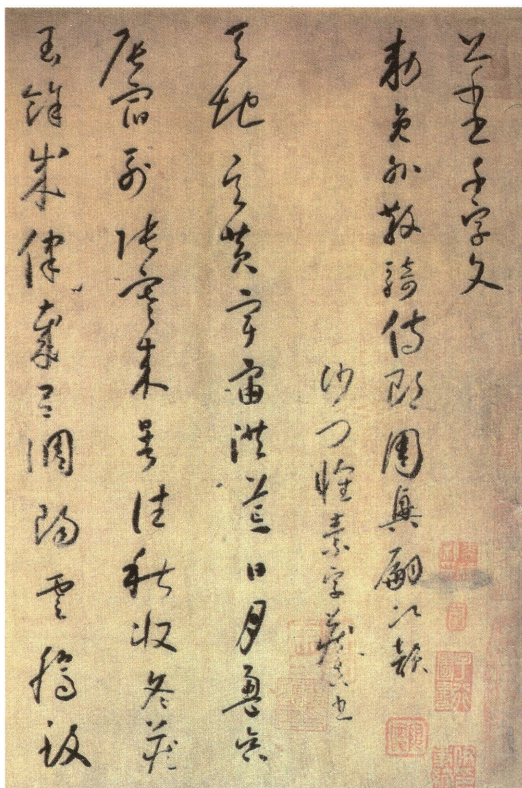 千字文
敕員外散騎侍郎周興嗣次韻
沙門懷素字藏真書
天地玄黃宇宙洪荒日月盈昃
辰宿列張寒來暑往秋收冬藏
閏餘成律歲呂調陽雲騰致